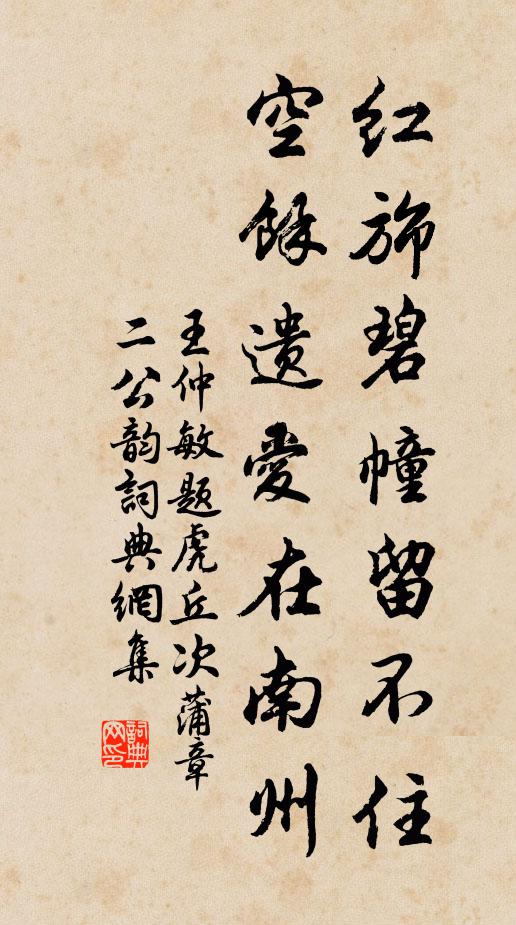 红旆碧幢留不住
空馀遗爱在南州
王仲敏题虎丘次蒲章
二公韵詞典網集
詞典网印